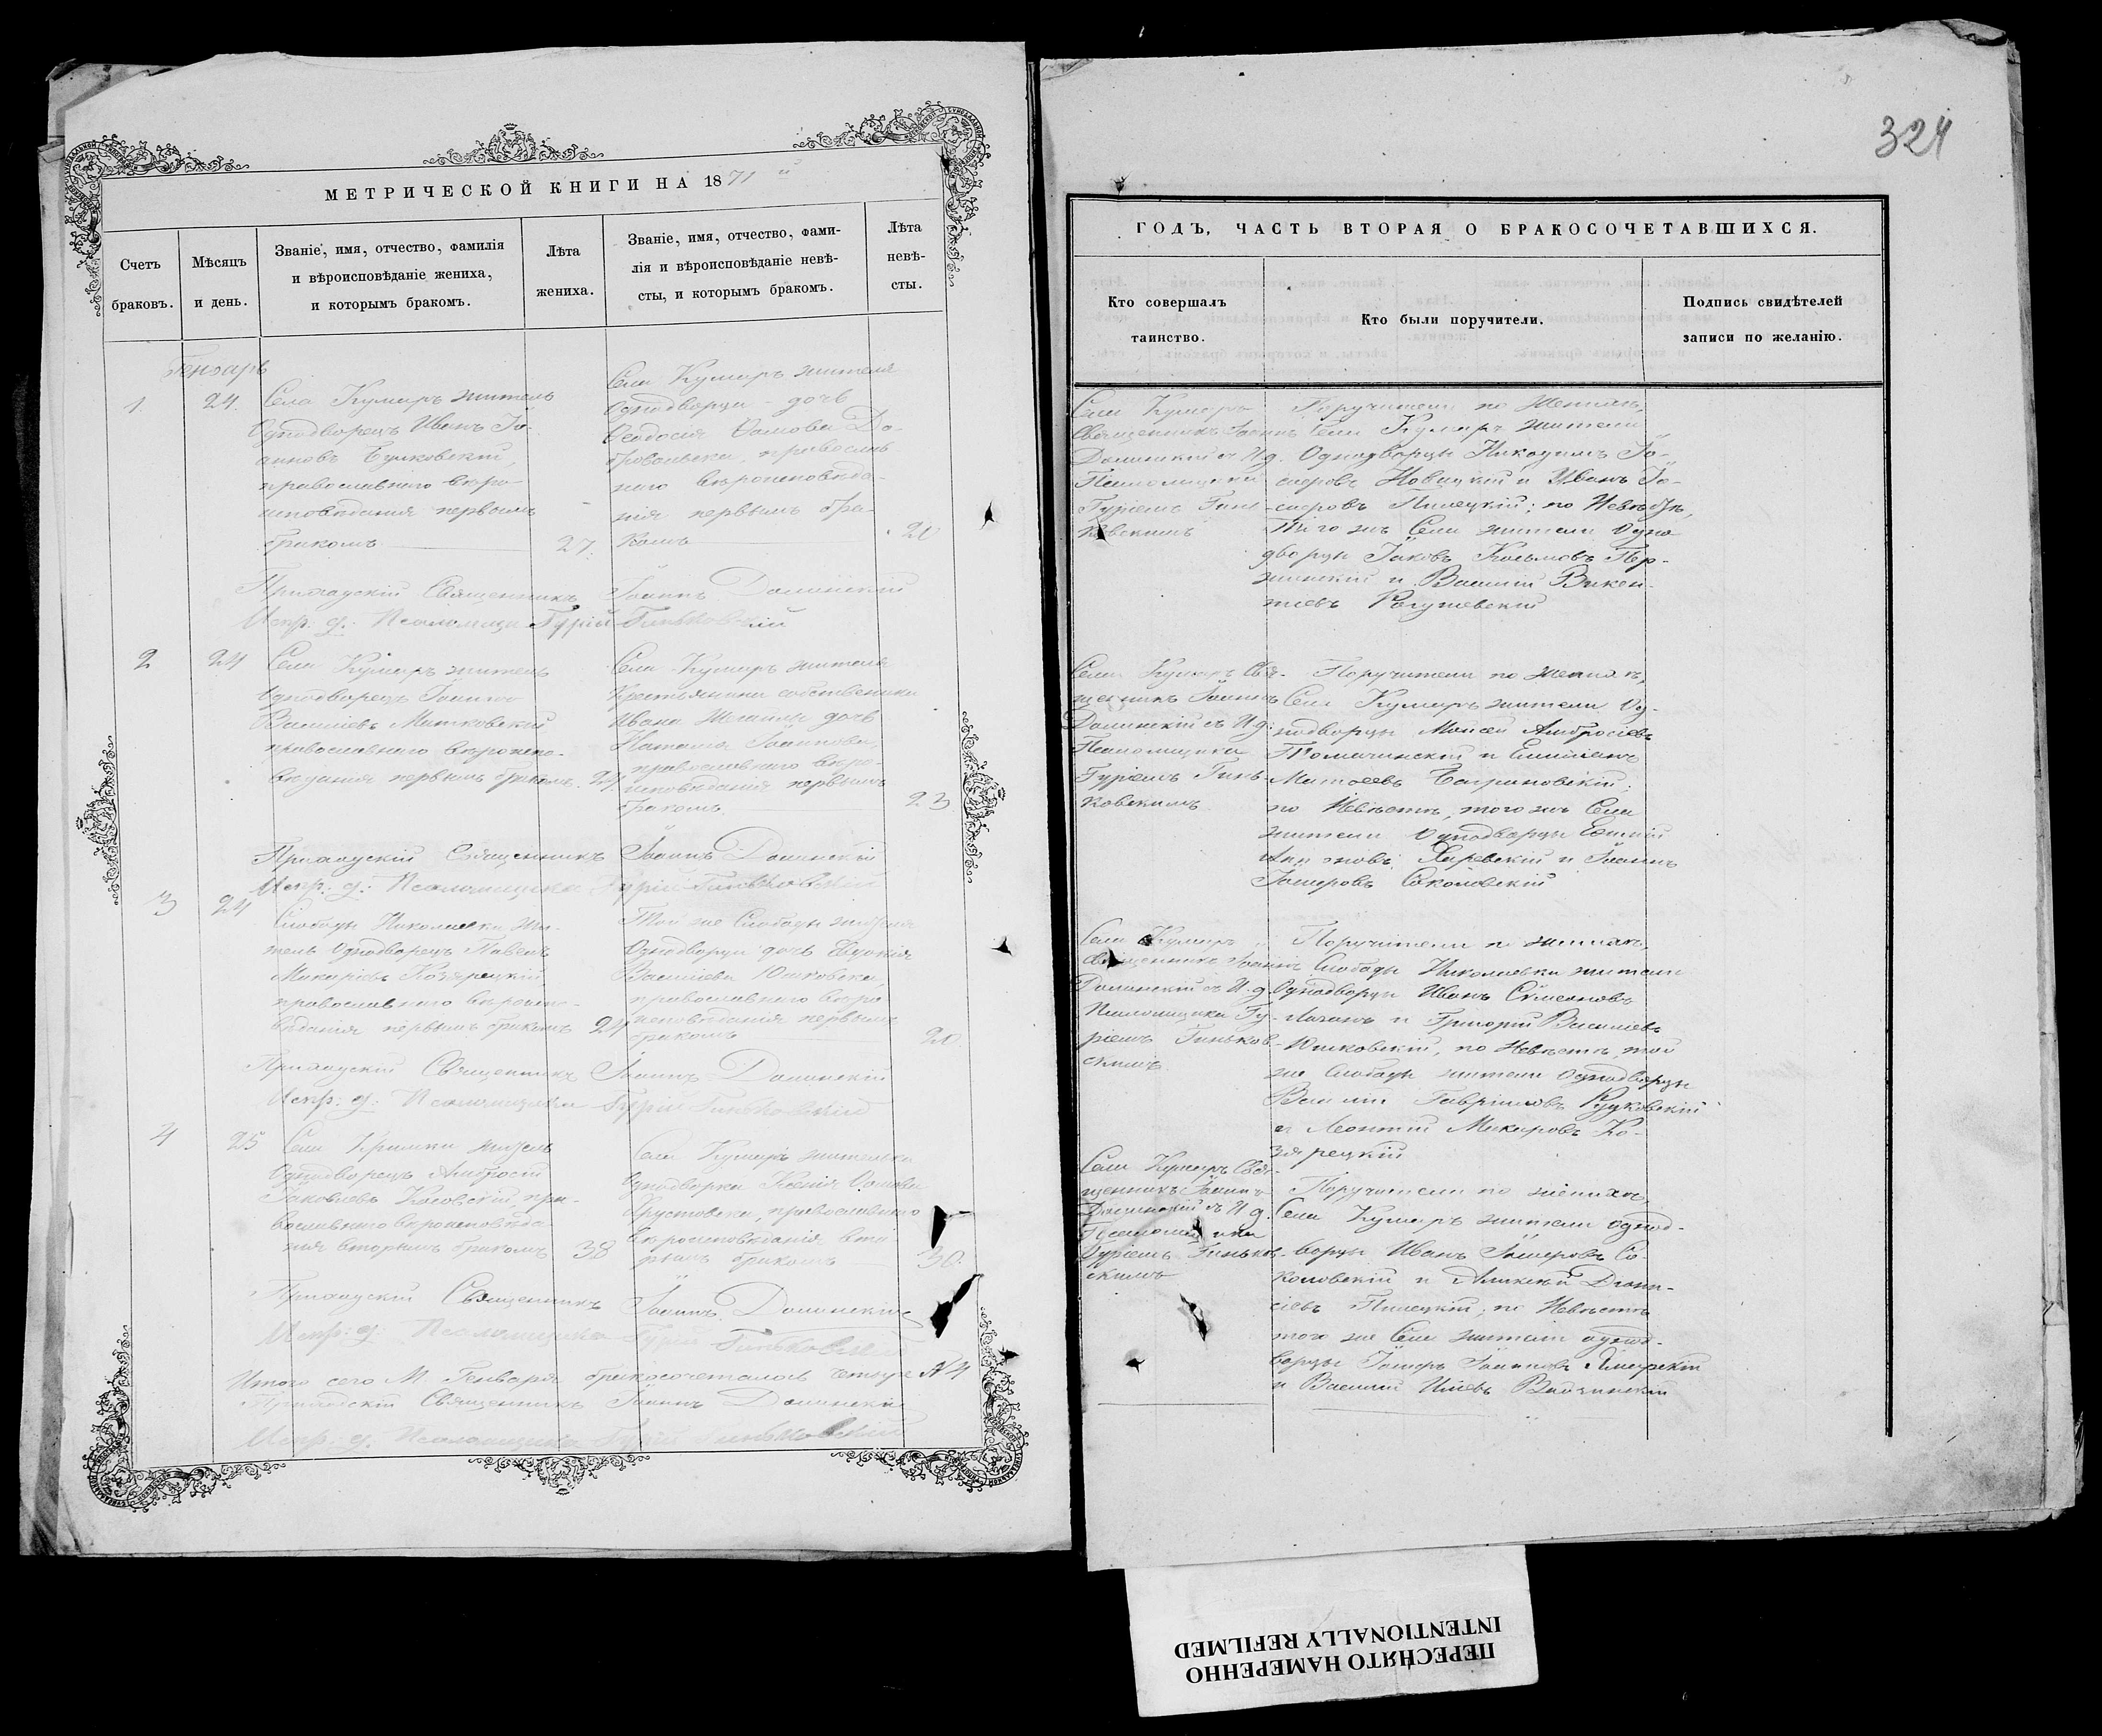 МЕТРИЧЕСКОЙ КНИГИ НА 1871 й
Счетъ браковъ.
Мѣсяцъ и день.
Званіе, имя, отчество, фамилія
и вѣроисповѣданіе жениха,
и которымъ бракомъ.
Лѣта
жениха.
Званіе, имя, отчество, фами-
лія и вѣроисповѣданіе невѣ-
сты, и которымъ бракомъ.
Лѣта
невѣ-
сты.
Генварь
1.
24.
Села Кумаръ житель
Однодворецъ Иванъ Іо-
анновъ
православнаго вѣро-
исповѣданія первымъ
бракомъ
27.
Села Кумаръ жителя
Однодворца дочь
Ѳеодосія Ѳомова До-
бровольска, православ
наго вѣроисповѣда-
нія первымъ бра-
комъ
20
Приходскій Священникъ Іоаннъ Долинскій
Испр: д: Псаломщика Гурій Гиньковскій
2
24
Села Кумаръ житель
Однодворецъ Іоаннъ
Василіевъ Митковскій
православнаго вѣроиспо-
вѣданія первымъ бракомъ.
24.
Села Кумаръ жителя
Крестьянина собственника
Ивана дочь
Наталія Іоаннова,
православнаго вѣро-
исповѣданія первымъ
бракомъ
23
Приходскій Священникъ Іоаннъ Долинскій
Испр: д: Псаломщика Гурій Гиньковскій
3
24
Слободы Николаевки жи-
тель Однодворецъ Павелъ
Макаріевъ Козярецкій
православнаго вѣроиспо-
вѣданія первымъ бракомъ
24
Той же Слободы жителя
Однодворца дочь Евдокія
Василіева Юшковска,
православнаго вѣро
исповѣданія первымъ
бракомъ
20.
Приходскій Священникъ Іоаннъ Долинскій
Испр: д: Псаломщика Гурій Гиньковскій
4
25
Села Кримки житель
Однодворецъ Амбросій
Іаковлевъ Косовскій, пра-
вославнаго вѣроисповѣда-
нія вторымъ бракомъ
38
Села Кумаръ жителька
Однодворка Ксенія Ѳомова
Хрустовска, православнаго
вѣроисповѣданія вто-
рымъ бракомъ
30.
Приходскій Священникъ Іоаннъ Долинскій
Испр: д. Псаломщика Гурій Гиньковскій
Итого сего М Генваря бракосочеталось четыре № 4
Приходскій Священникъ Іоаннъ Долинскій
Испр: д. Псаломщика Гурій Гиньковскій
324
ГОДЪ, ЧАСТЬ ВТОРАЯ О БРАКОСОЧЕТАВШИХСЯ.
Кто совершалъ
таинство.
Кто были поручители.
Подпись свидѣтелей
записи по желанію.
Села Кумаръ
Священникъ Іоаннъ
Долинскій съ И. д.
Псаломщика
Гуріемъ Гинь-
ковскимъ
Поручители по женихѣ,
Села Кумаръ жители
Однодворцы Никодимъ Іо-
сифовъ Новицкій и Иванъ Іо-
сифовъ Пилецкій; по Невѣстѣ,
того жъ Села жители Одно
дворцы Іаковъ Косьмовъ
и Василій Викен-
тіевъ Рогушевскій
Села Кумаръ Свя-
щенникъ Іоаннъ
Долинскій съ И д:
Псаломщика
Гуріемъ Гинь-
ковскимъ
Поручители по женихѣ,
Села Кумаръ жители Од-
нодворцы Мойсей Амбросіевъ
Томачинскій и
Матѳеевъ Багриновскій;
по Невѣстѣ, того жъ Села
жители Однодворцы
и Іоаннъ
Іосифовъ Соколовскій
Села Кумаръ
Священникъ Іоаннъ
Долинскій съ И. д.
Псаломщика Гу-
ріемъ Гиньков-
скимъ
Поручители по женихѣ,
Слободы Николаевки жители
Однодворцы Иванъ Сѵмеоновъ
и Григорій Василіевъ
Юшковскій, по Невѣстѣ, той
же Слободы жители Однодворцы
Василій Гавріиловъ Рудковскій
и Леонтій Макаровъ Ко-
зярецкій
Села Кумаръ Свя-
щенникъ Іоаннъ
Долинскій съ И д.
Псаломщика
Гуріемъ Гиньков-
скимъ
Поручители по женихѣ,
Села Кумаръ жители однод-
ворцы Иванъ Іосифовъ Со-
коловскій и Алексѣй Діони-
сіевъ Пилецкій, по Невѣстѣ
того же Села жители однод-
ворцы Іосифъ Іоанновъ
и Василій Иліевъ
ПЕРЕСНЯТО НАМЕРЕННО
INTENTIONALLY REFILMED